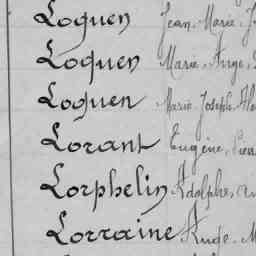 Loquen Jean Marie
Loquen Marie Ange
Loquen Marie Joseph
Lorant Eugène
Lorphelin Adolphe
Lorraine Ange